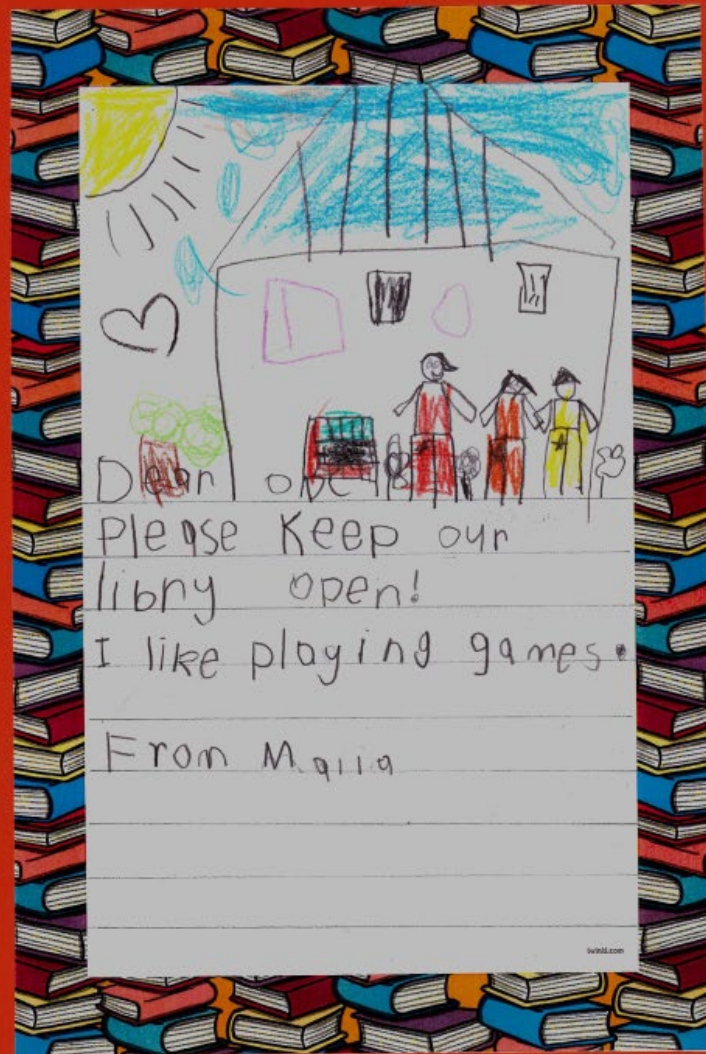 Dear
Please Keep our
libry open!
I like playing games.
From
twinkl.com